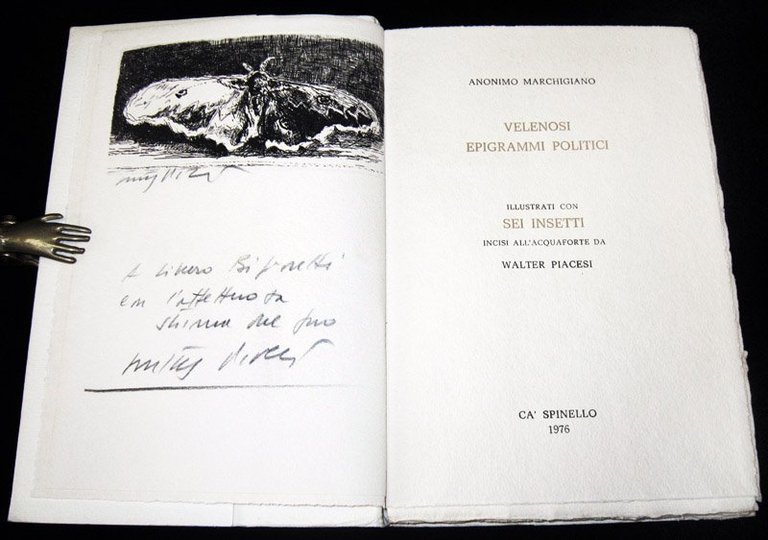 A Libero Bigiaretti
con l'affettuosa
stima del suo
ANONIMO MARCHIGIANO
VELENOSI
EPIGRAMMI POLITICI
ILLUSTRATI CON
SEI INSETTI
INCISI ALL'ACQUAFORTE DA
WALTER PIACESI
CA' SPINELLO
1976